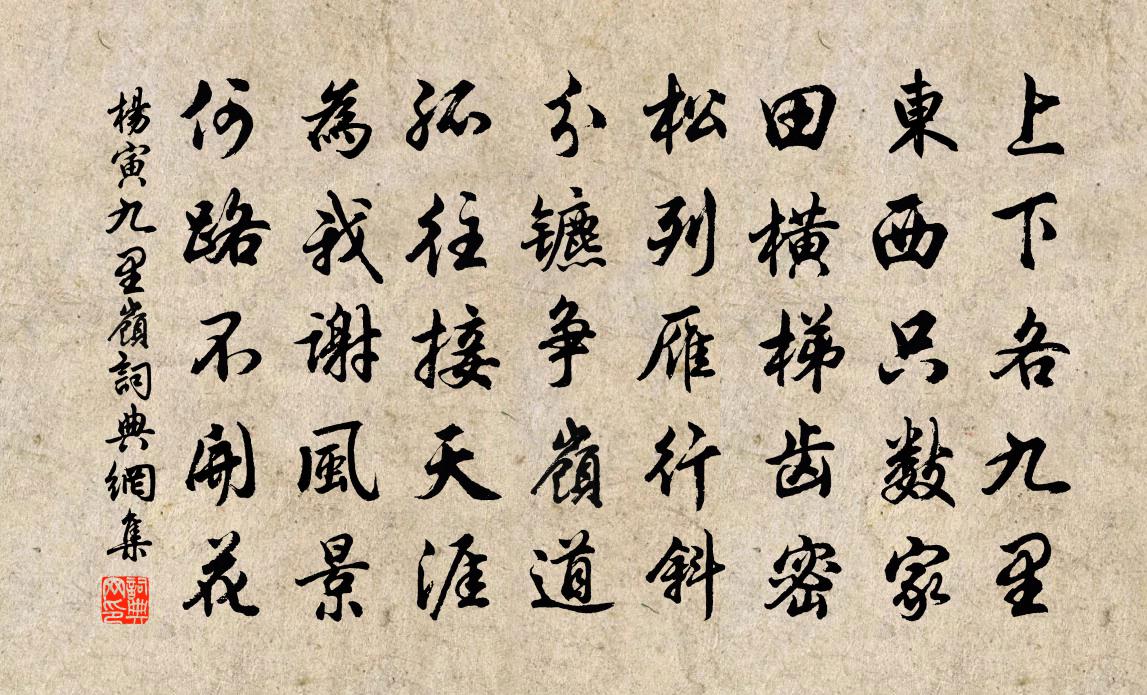 上下各九里
東西只数家
田橫梯齿密
松列雁行斜
分镳争嶺道
孤往接天涯
為我谢風景
何路不開花
楊寅九里嶺詞典網集
詞典網印